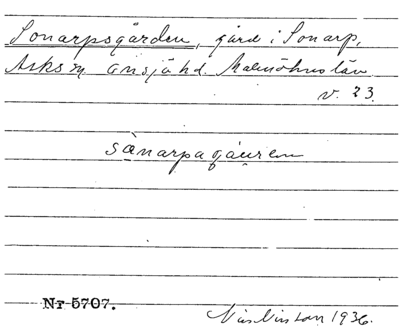 Sonarpsgården, gård i Sonarp,
Asks sn Onsjö hd. Malmöhus län
v. 23.
sànarpagáuren
Nr 5707.
Nils Nilsson 1936.